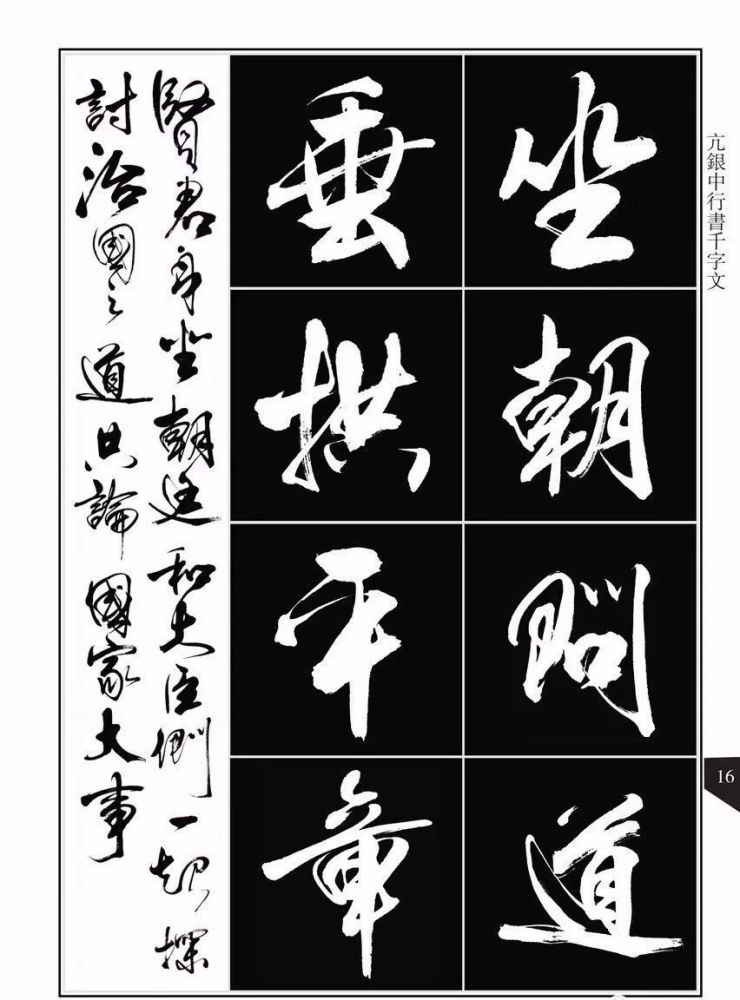 亢銀中行書千字文
坐朝問道
垂拱平章
賢君身坐朝廷和大臣們一起探
討治國之道共論國家大事
16